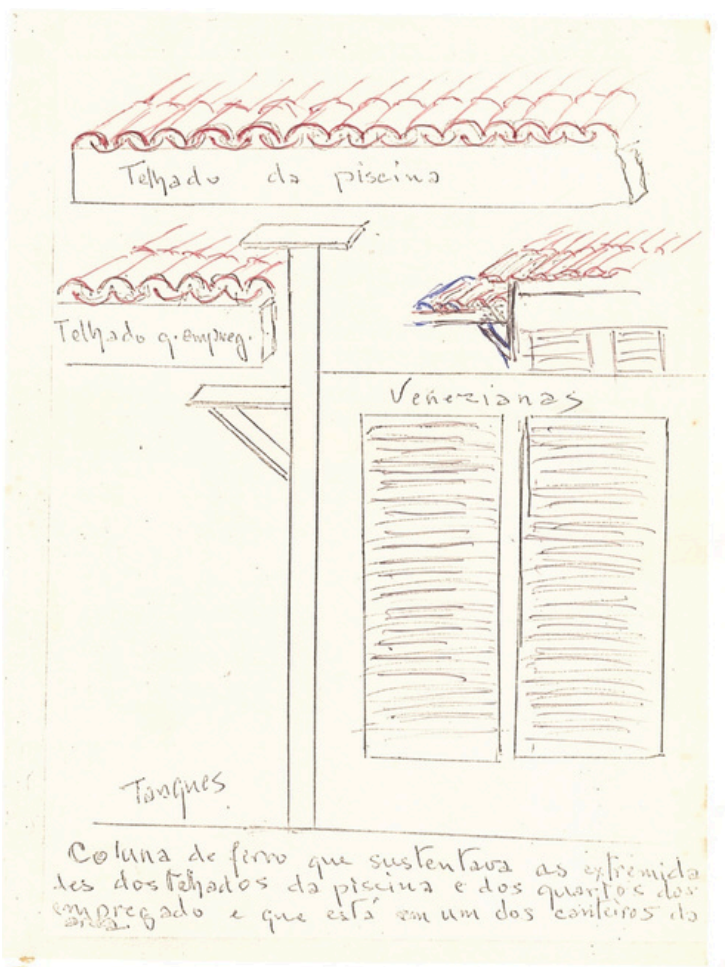 Telhado da piscina
Telhado q. empreg.
Venezianas
Tanques
Coluna de ferro que sustentava as extremida
des dos telhados da piscina e dos quartos dos
empregado e que está em um dos canteiros da
area.